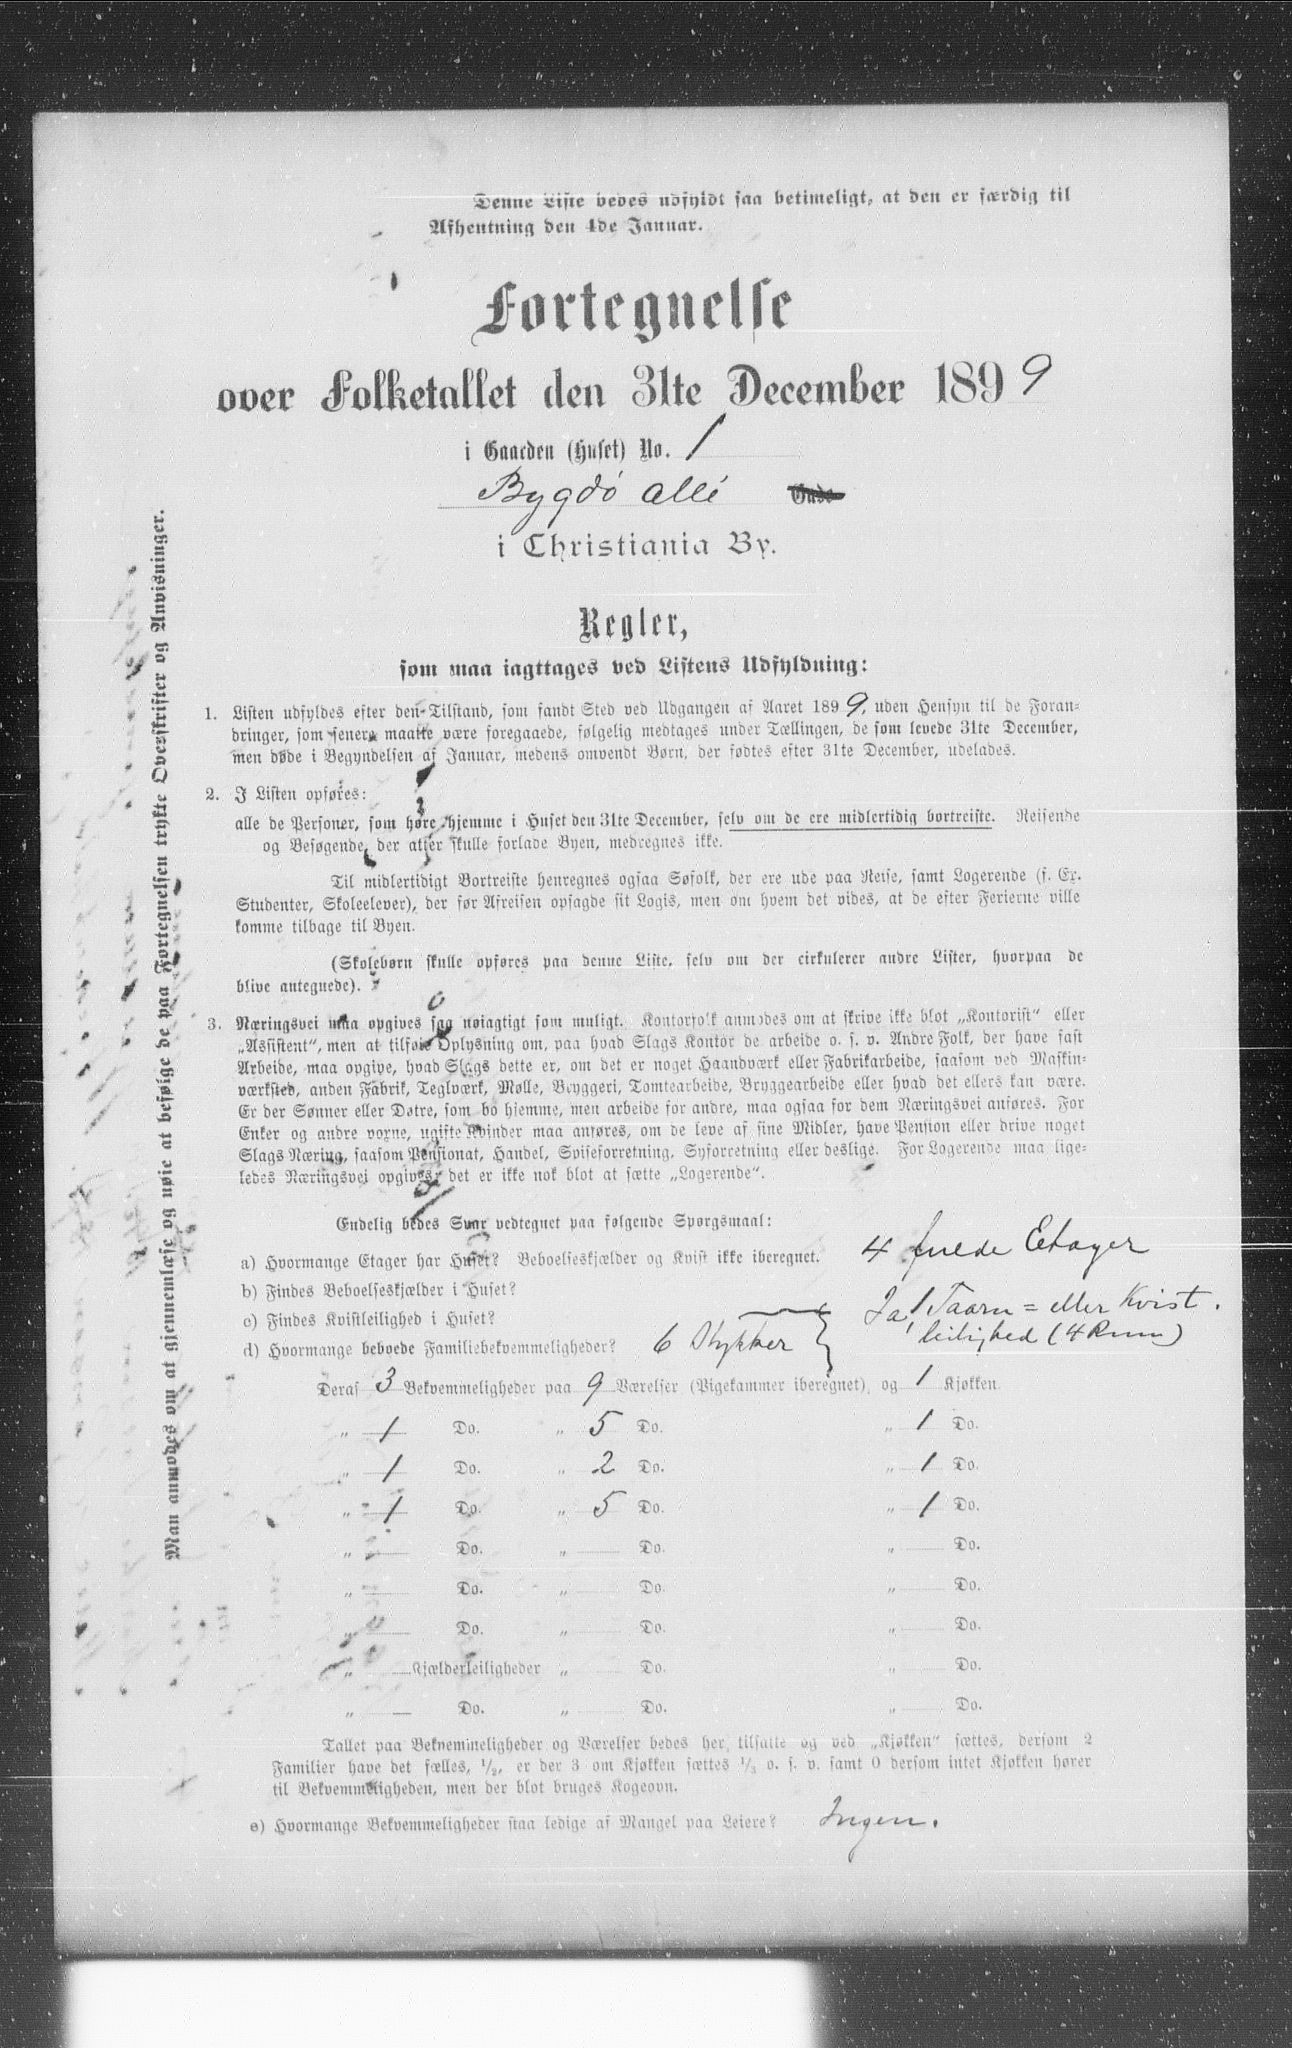 Denne Liste bedes udfyldt saa betimeligt, at den er færdig til
Afhentning den 4de Januar.
Fortegnelse
over Folketallet den 31te December 1899
i Gaarden (Huset) No. 1
Bygdö allé Gade
i Christiania By.
Regler,
som maa iagttages ved Listens Udfyldning:
1. Listen udfyldes efter den Tilstand, som fandt Sted ved Udgangen af Aaret 1899, uden Hensyn til de Foran-
dringer, som senere maatte være foregaaede, følgelig medtages under Tællingen, de som levede 31te December,
men døde i Begyndelsen af Januar, medens omvendt Børn, der fødtes efter 31te December, udelades.
2. I Listen opføres:
alle de Personer, som høre hjemme i Huset den 31te December, selv om de ere midlertidig bortreiste. Reisende
og Besøgende, der atter skulle forlade Byen, medregnes ikke.
Til midlertidigt Bortreiste henregnes ogsaa Søfolk, der ere ude paa Reise, samt Logerende (f. Ex.
Studenter, Skoleelever), der før Afreisen opsagde sit Logis, men om hvem det vides, at de efter Ferierne ville
komme tilbage til Byen.
(Skolebørn skulle opføres paa denne Liste, selv om der cirkulerer andre Lister, hvorpaa de
blive antegnede).
3. Næringsvei maa opgives saa nøiagtigt som muligt. Kontorfolk anmodes om at skrive ikke blot „Kontorist“ eller
„Assistent“, men at tilføie Oplysning om, paa hvad Slags Kontor de arbeide o. s. v. Andre Folk, der have fast
Arbeide, maa opgive, hvad Slags dette er, om det er noget Haandværk eller Fabrikarbeide, saasom ved Maskin-
værksted, anden Fabrik, Teglværk, Mølle, Bryggeri, Tomtearbeide, Bryggearbeide eller hvad det ellers kan være.
Er der Sønner eller Døtre, som bo hjemme, men arbeide for andre, maa ogsaa for dem Næringsvei anføres. For
Enker og andre voxne, ugifte Kvinder maa anføres, om de leve af sine Midler, have Pension eller drive noget
Slags Næring, saasom Pensionat, Handel, Spiseforretning, Syforretning eller deslige. For Logerende maa lige-
ledes Næringsvei opgives; det er ikke nok blot at sætte „Logerende“.
Endelig bedes Svar vedtegnet paa følgende Spørgsmaal:
a) Hvormange Etager har Huset? Beboelseskjælder og Kvist ikke iberegnet. 4 fulde Etager
b) Findes Beboelseskjælder i Huset?
c) Findes Kvistleilighed i Huset? Ja, 1 Taarn= eller Kvist.
leilighed (4 Rum)
d) Hvormange beboede Familiebekvemmeligheder? 6 Stykker
Deraf 3 Bekvemmeligheder paa 9 Værelser (Pigekammer iberegnet), og 1 Kjøkken
„ 1 Do. „ 5 Do. „ 1 Do.
„ 1 Do. „ 2 Do. „ 1 Do.
„ 1 Do. „ 5 Do. „ 1 Do.
„ Do. „ Do. „ Do.
„ Do. „ Do. „ Do.
„ Do. „ Do. „ Do.
„ Kjælderleiligheder „ Do. „ Do.
„ Do. „ Do. „ Do.
Tallet paa Bekvemmeligheder og Værelser bedes her tilsatte og ved „Kjøkken“ sættes, dersom 2
Familier have det fælles, 1/2, er der 3 om Kjøkken sættes 1/3 o. s. v. samt 0 dersom intet Kjøkken hører
til Bekvemmeligheden, men der blot bruges Kogeovn.
e) Hvormange Bekvemmeligheder staa ledige af Mangel paa Leiere? Ingen.
Man anmodes om at gjennemlæse og nøie at befølge de paa Fortegnelsen trykte Overskrifter og Anvisninger.